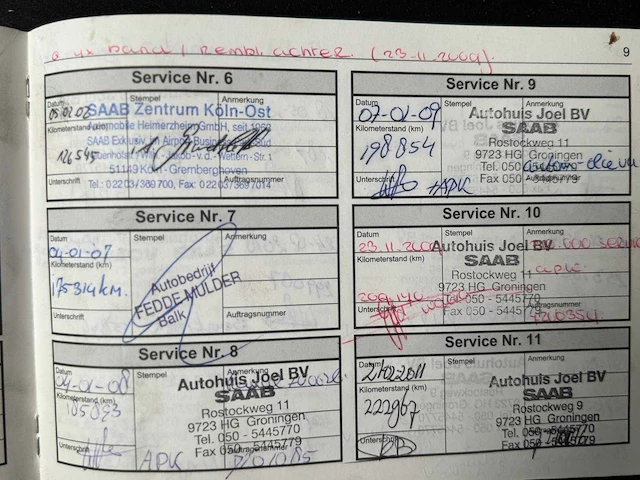 4x band / Rembl. achter. (23-11-2009).
9
Service Nr. 6
Datum
Stempel
Anmerkung
05.02.02
SAAB Zentrum Köln-Ost
Automobile Heimerzheim GmbH, seit
Kilometerstand (km)
126545
SAAB Exklusiv im Airport Business
51149 Köln - Gremberghoven
Unterschrift
Tel.: 02203/369700, Fax: 02203/3697014
Auftragsnummer
Service Nr. 7
Datum
Stempel
Anmerkung
04-01-'07
Kilometerstand (km)
175314 km.
Autobedrijf
FEDDE MULDER
Balk
Unterschrift
Auftragsnummer
Service Nr. 8
Datum
Stempel
Anmerkung
04-01-08
Autohuis Joel BV
SAAB
Kilometerstand (km)
Rostockweg 11
9723 HG Groningen
Unterschrift
Tel. 050 - 5445770
APK
Service Nr. 9
Datum
Stempel
Anmerkung
07-01-09
Autohuis Joel BV
SAAB
Kilometerstand (km)
198854
Rostockweg 11
9723 HG Groningen
Tel. 050
Unterschrift
Fax 050 - 5445779
+APK
Service Nr. 10
Datum
Stempel
Anmerkung
23.11.2009
Autohuis Joel BV
SAAB
Kilometerstand (km)
Rostockweg 11
9723 HG Groningen
050 - 5445770
Unterschrift
Fax 050 - 5445779
Auftragsnummer
Service Nr. 11
Datum
Stempel
Anmerkung
21-02-2011
Autohuis Joel BV
SAAB
Kilometerstand (km)
222967
Rostockweg 11
9723 HG Groningen
Unterschrift
Tel. 050-5445770
Fax 050 - 5445779